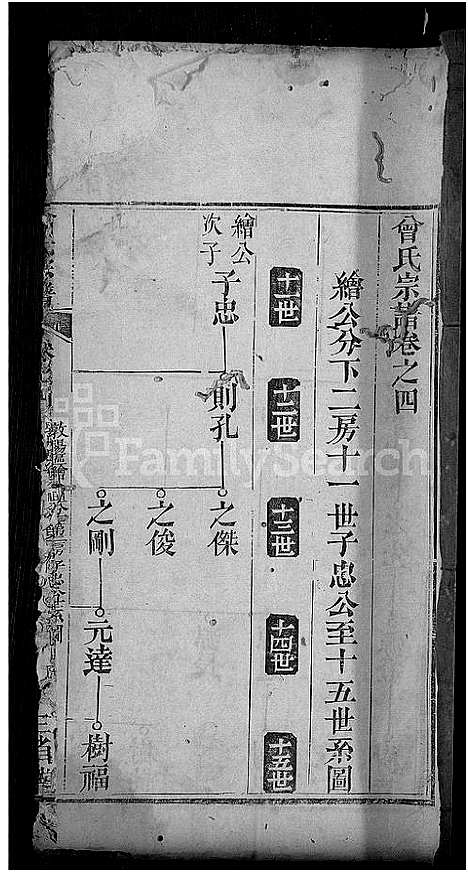 曾氏宗譜卷之四
繪公分下二房十一世子忠公至十五世系圖
十一世
十二世
十三世
十四世
十五世
繪公
次子
子忠
則孔
之傑
之俊
之剛
元達
樹福
三省堂
FamilySearch